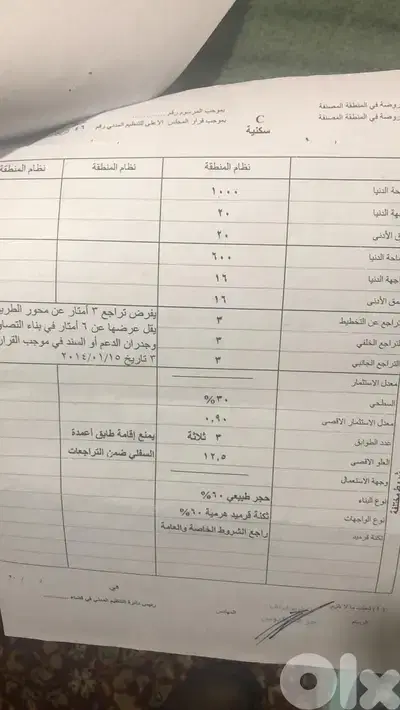 روضة في المنطقة المصنفة
بموجب المرسوم رقم
روضة في المنطقة المصنفة
C
بموجب قرار المجلس الاعلى للتنظيم المدني رقم
سكنية
نظام المنطقة نظام المنطقة نظام المنطقة
حة الدنيا ١٠٠٠
هة الدنيا ٢٠
ق الأدنى ٢٠
ساحة الدنيا ٦٠٠
اجهة الدنيا ١٦
مق الأدنى ١٦
تراجع عن التخطيط ٣ يفرض تراجع ٣ أمتار عن محور الطري
التراجع الخلفي ٣ يقل عرضها عن ٦ أمتار في بناء التصاو
التراجع الجانبي ٣ وجدران الدعم أو السند في موجب القرار
٣ تاريخ ٢٠١٤/٠١/١٥
معدل الاستثمار
السطحي ٣٠%
معدل الاستثمار الاقصى ٠,٩٠
عدد الطوابق ٣ ثلاثة يمنع إقامة طابق أعمدة
العلو الاقصى ١٢,٥ السفلي ضمن التراجعات
وجهة الاستعمال
نوع البناء حجر طبيعي ٦٠%
نوع الواجهات ثكنة قرميد هرمية ٦٠%
ثكنة قرميد راجع الشروط الخاصة والعامة
في
المهندس
رئيس دائرة التنظيم المدني في قضاء
الرسم
olx